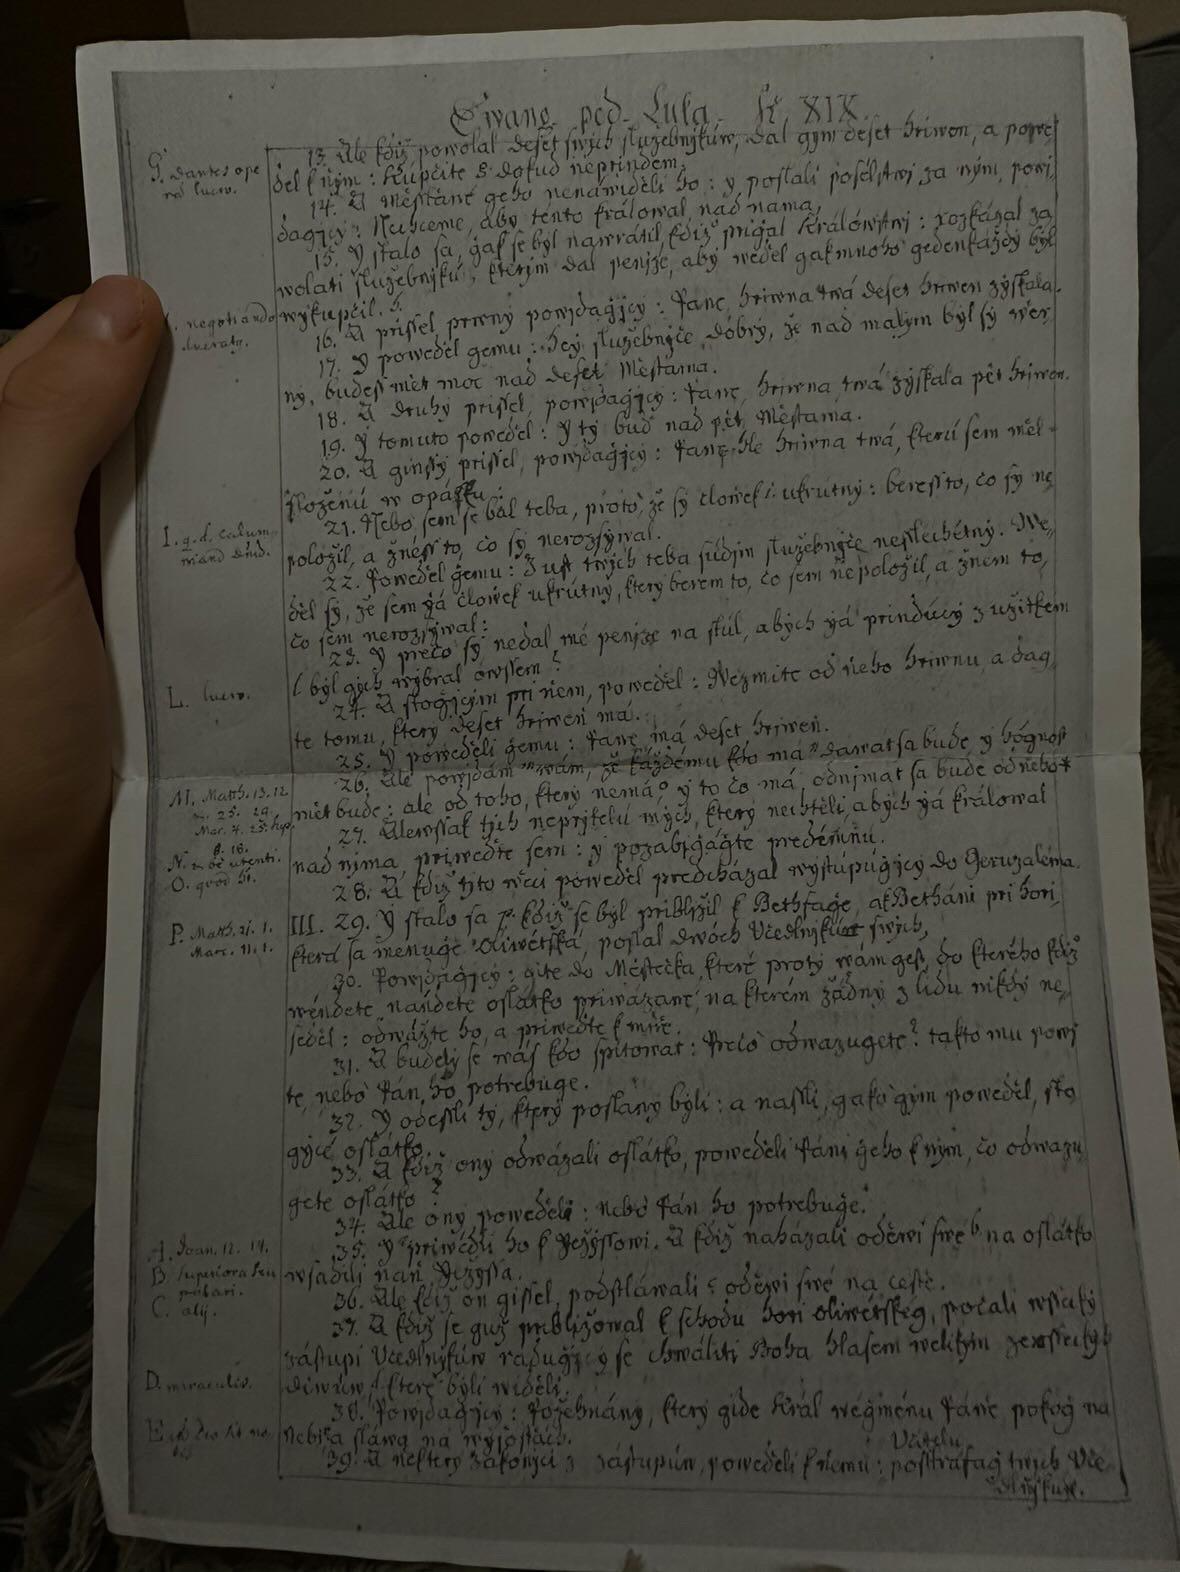 Ewang. pod. Luká. K. XIX.
13. Ale když powolal deset swých služebnýkůw, dal gým deset hriwen, a powe
G. dantes ope
ram lucro.
děl k ným: Kupčite g dokud neprindem.
14. A Měštané geho nenáwiděli ho: y poslali poselstwi za ným, powj
dagjcý: Nechceme, aby tento králowal nad nama,
15. Y stalo sa, gak se býl nawrátil, když prigal Králowstwi: rozkázal za
wolati služebnýkú, kterým dal penjze, abý weděl gak mnoho gedenkaždý býl
wykupčil. h.
negotiando
lucratg.
16. A prissel prwný powjdagjcý: Pane, hriwna twá deset hriwen zýskala.
17. Y poweděl gemu: hey služebnýče dobrý, že nad malým býl sý wěr
ný, budeš mět moc nad deset Městama.
18. A druhý prissel, powjdagjcý: Pane, hriwna twá zýskala pět hriwen.
19. Y tomuto poweděl: Y tý buď nad pět Městama.
20. A ginssý prissel, powjdagjcý: Pane hle hriwna twá, kterú sem měl
složenú w opásku:
21. Nebo sem se bál teba, proto, že sý člowek i ukrutný: beressto, čo sý ne
I. q.d. calum
niand
položil, a žness to, čo sý nerozsýwal.
22. Poweděl gemu: Z ust twých teba súdjm služebnýče nesslechetný. We
děl sý, že sem gá člowek ukrutný, který berem to, čo sem nepoložil, a žnem to,
čo sem nerozsýwal:
23. Y prečo sý nedal mé penjze na stúl, abých gá prindúcý z užitkem
L. lucro.
l býl gých wýbral owssem?
24. A stogjcým pri něm, poweděl: Wezmite od ňeho hriwnu, a dag
te tomu, který deset hriweň má.
25. Y poweděli gemu: Pane má deset hriweň.
26. Ale powjdám wám, že každému kdo má dawat sa bude, y hógnost
M. Matth. 13. 12
25. 29.
Mar. 4. 25. sup.
8. 18.
mět bude: ale od toho, který nemá o y to čo má, odnjmat sa bude od neho
27. Alewssak tých neprjtelú mých, který nechtěli, abých gá králowal
N. utenti.
O. quod ht.
nad nýma, priweďte sem: y pozabjgágte predemňú.
28. A když týto wěci poweděl predcházal wystúpúgjcý do Geruzaléma.
P. Matth. 21. 1.
Marc. 11. 1.
III. 29. Y stalo sa p. když se býl priblížil k Bethfage, a k Betháni pri hori,
která sa menuge Oliwětská, poslal dwóch Učedlnýků swých,
30. Powjdagjcý: gite do Městečka, které protý wám gest, do kterého když
wéndete, naňdete oslátko priwázané, na kterém žádný z lidu nikdý ne
seděl: odwážte ho, a priweďte k mňe.
31. A budelý se wás kdo spitowat: Prečo odwazugete? takto mu powj
te, nebo Pán ho potrebuge.
32. Y odessli tý, který poslaný býli: a nassli, gako gým poweděl, sto
gýcé oslátko.
33. A když oný odwázali oslátko, poweděli Páni geho k ným, čo odwazu
gete oslátko?
34. Ale oný poweděli: nebo Pán ho potrebuge.
A. Joan. 12. 14.
35. Y priwédli ho k Gežýssowi. A když naházali oděwi swé b na oslátko
B. superiora
C. alij.
wsadili naň Gežýssa.
36. Ale když on gissel, podstláwali c oděwi swé na cestě.
37. A když se guž približowal k schodu hori oliwětskeg, počali wssický
zástupi Učedlnýkůw radugjcý se chwáliti Boha hlasem welikým ze wssech
D. miraculis.
diwúw d které býli widěli.
38. Powjdagjcý: Požehnaný, který gide Král weǧménu Páně pokog na
nebi a sláwa na wýsostách.
39. A některý zákonýci z zástupúw, poweděli k němu: Učitelu postrafag twých Uče
dlnýkuw.